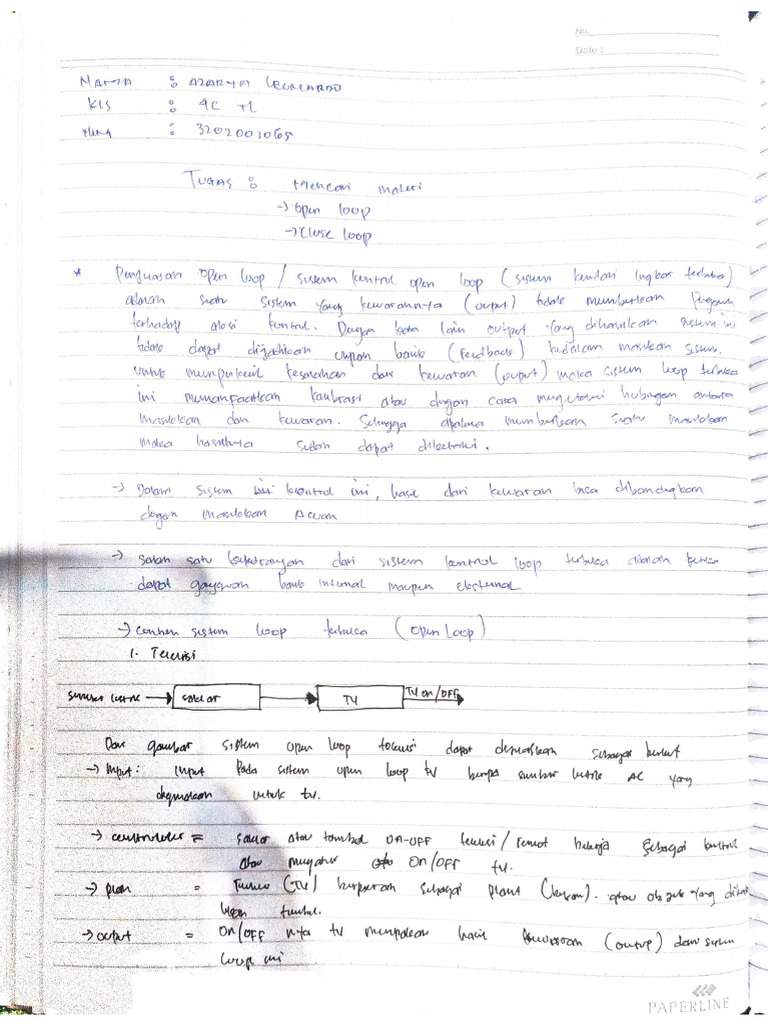 No.
Date:
NAMA : AZARYA LEONARDO
KLS : 4C TL
NIM : 3202003065
TUGAS : Mencari materi
→ Open loop
→ Close loop
* Penjelasan open loop / sistem kontrol open loop (sistem kendali lingkar terbuka)
adalah suatu sistem yang keluarannya (output) tidak memberikan pengaruh
terhadap aksi kontrol. Dengan kata lain output yang dihasilkan sistem ini
tidak dapat dijadikan umpan balik (feedback) kedalam masukan sistem.
untuk memperkecil kesalahan dari keluaran (output) maka sistem loop terbuka
ini memanfaatkan kalibrasi atau dengan cara mengetahui hubungan antara
masukkan dan keluaran. Sehingga apabila memberikan suatu masukkan
maka hasilnya sudah dapat diketahui.
→ Dalam sistem kontrol ini, hasil dari keluaran bisa dibandingkan
dengan masukkan Acuan
→ salah satu kekurangan dari sistem kontrol loop terbuka adalah
dapat gangguan baik internal maupun eksternal
→ contoh sistem loop terbuka (open loop)
1. Televisi
sumber listrik → saklar → TV TV on/OFF
Dari gambar sistem open loop televisi dapat sebagai berikut
→ Input : input Pada sistem open loop tv berupa sumber listrik AC yang
digunakan untuk tv.
→ controller = saklar atau tombol ON-OFF televisi / remot bekerja sebagai kontrol
atau mengatur ON/OFF tv.
→ plan = (TV) berperan sebagai plant. atau objek yang
→ output = ON/OFF nya tv merupakan hasil (output) dari sistem
loop ini
PAPERLINE